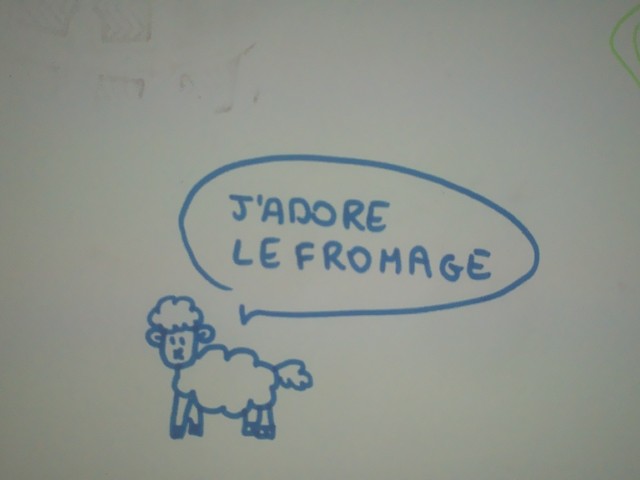 J'ADORE
LE FROMAGE